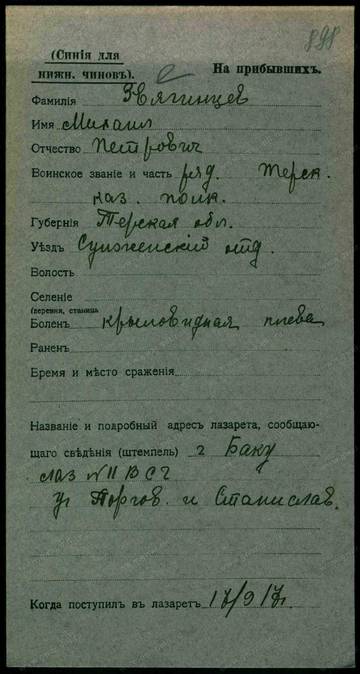 898
(Синія для
нижн. чиновъ).
На прибывшихъ.
Фамилія Звягинцев
Имя Михаил
Отчество Петрович
Воинское званіе и часть ряд. Терск.
каз. полк.
Губернія Терская обл.
Уѣздъ Сунженский отд.
Волость
Селеніе
(деревня, станица
Боленъ крыловидная плева
Раненъ
Время и мѣсто сраженія
Названіе и подробный адресъ лазарета, сообщаю-
щаго свѣдѣнія (штемпель) г Баку
лаз № 11 В С Г
уг Торгов. и Станислав.
Когда поступилъ въ лазаретъ 17/9 17г.